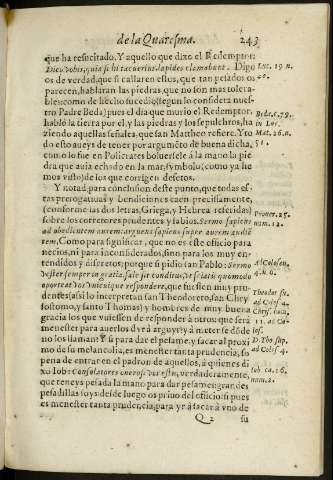 de la Quaresma. 243
que ha resucitado. Y aquello que dixo el Redemptor:
Dico vobis, quia si hi tacuerint, lapides clamabunt. Digo
os de verdad, que si callaren estos, que tan pesados os
parecen, hablaran las piedras, que no son mas tolera-
bles: como de hecho sucedio (segun lo considera nues-
tro Padre Beda) pues el dia que murio el Redemptor,
hablò la tierra por el, y las piedras y los sepulchros, ha
ziendo aquellas señales, que san Mattheo refiere. Y to
do esto aueys de tener por argumẽto de buena dicha,
como lo fue en Policrates boluersele à la mano la pie
dra que auia echado en la mar, symbolo, (como ya he
mos visto) de los que corrigen defetos.
Y notad para conclusion deste punto, que todas es-
tas prerogatiuas y bendiciones caen precissamente,
(conforme las dos letras, Griega, y Hebrea referidas)
sobre los corretores prudentes y sabios. Sermo sapiens
ad obedientem aurem: arguens sapiens super aurem audiẽ
tem, Como para significar, que no es este oficio para
necios, ni para inconsiderados, sino para los muy en-
tendidos y discretos: porque si pidio san Pablo: Sermo
vester semper in gratia, sale sit conditus, vt sciatis quomodo
oporteat vos vnicuique respondere, que fuessen muy pru-
dentes (assi lo interpretan san Theodoreto, san Chry
sostomo, y santo Thomas) y hombres de muy buena
gracia los que vuiessen de responder à otros: que serà
menester para auerlos dyr à arguyr, y à meterse dõde
no los llaman? Y si para dar el pesame, y sacar al proxi
mo de su melancolia, es menester tanta prudencia, so
pena de entrar en el padron de aquellos, à quienes di
xo Iob: Consolatores onerosi vos estis, verdaderamente,
que teneys pesada la mano para dar pesames: grandes
pesadillas soys: desde luego os priuo del oficio: si pues
es menester tanta prudencia, para yr à sacar à vno de
Q 2 su
Luc. 19 n.
40.
Beda. c. 79.
in Luc.
Mat. 26. n.
51.
Prouer. 25.
num. 12.
Al Colosen.
4. n. 6.
Theodor. sup.
ad Colos. 4.
Chrys. hom.
11. ad Co-
los.
D. Tho. sup.
ad Colos. 4.
Iob. ca. 16.
num. 2.